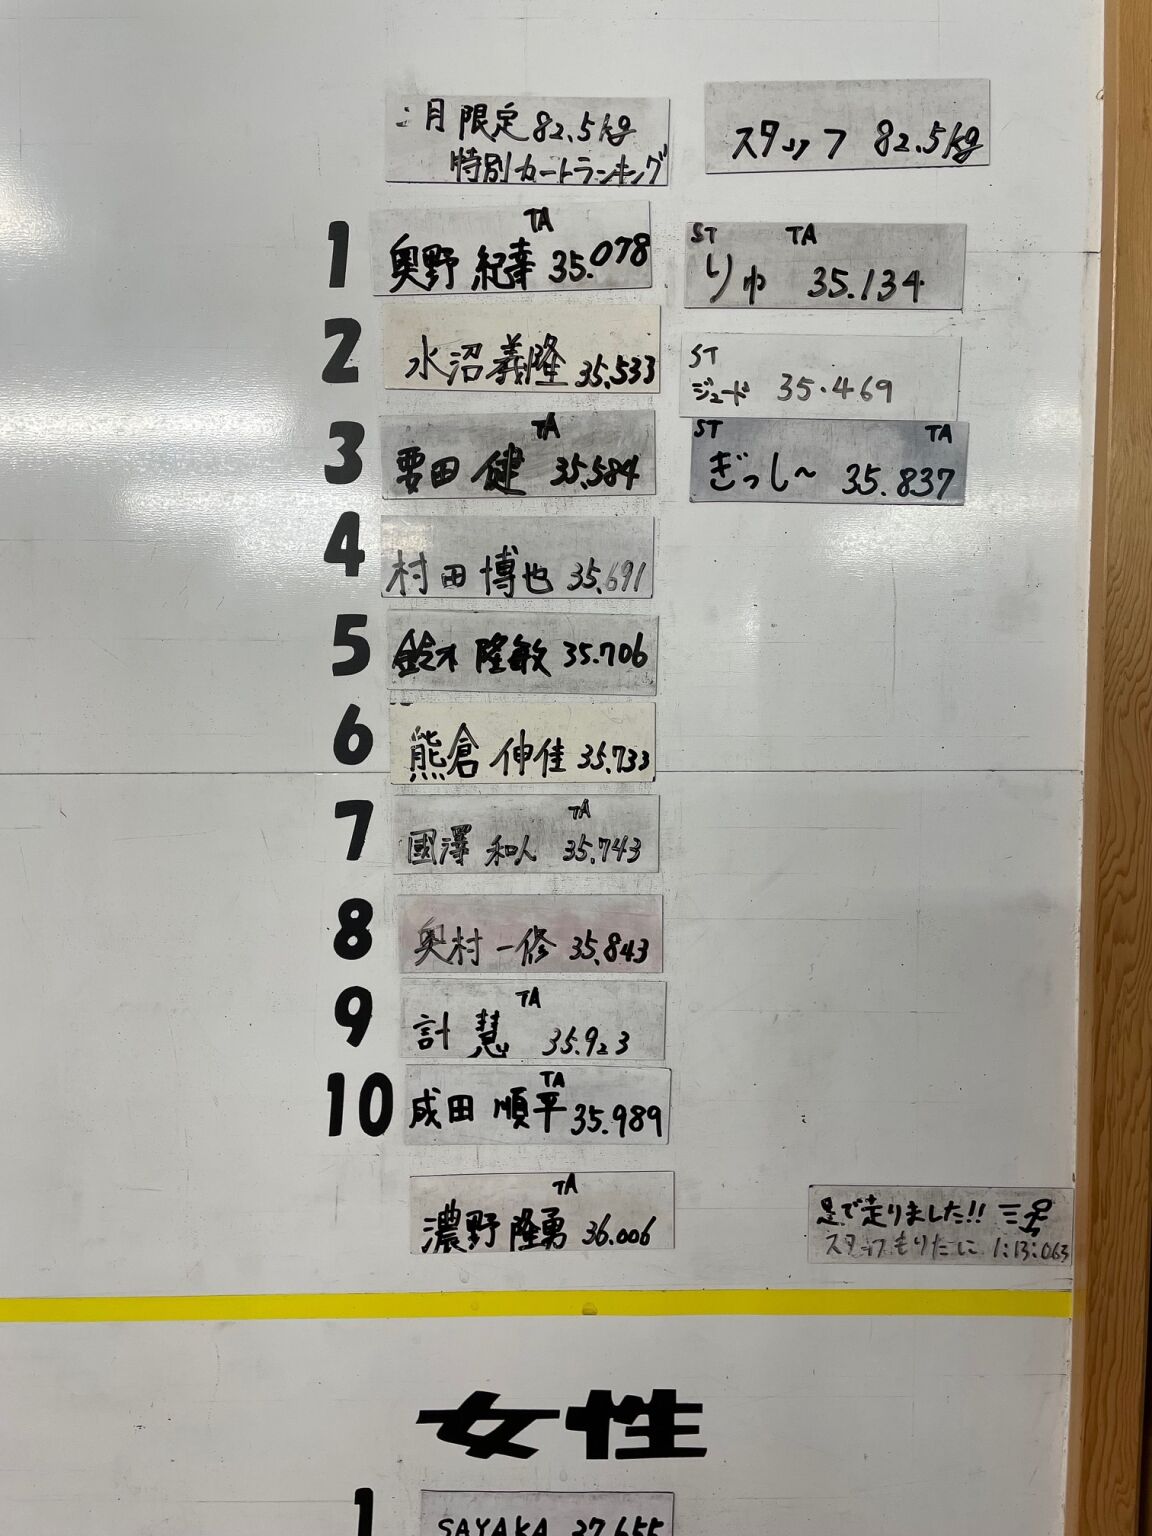 月限定82.5kg
特別カートランキング
スタッフ 82.5kg
1
TA
奥野 紀幸 35.078
ST TA
りゅ 35.134
2
水沼義隆 35.533
ST
ジュード 35.469
3
TA
栗田 健 35.584
ST TA
ぎっし〜 35.837
4
村田 博也 35.691
5
鈴木 隆敏 35.706
6
熊倉 伸佳 35.733
7
TA
國澤 和人 35.743
8
奥村 一修 35.843
9
TA
計 慧 35.923
10
TA
成田 順平 35.989
TA
濃野 隆勇 36.006
足で走りました!!
スタッフもりたに 1:13:063
女性
1
SAYAKA 37.655